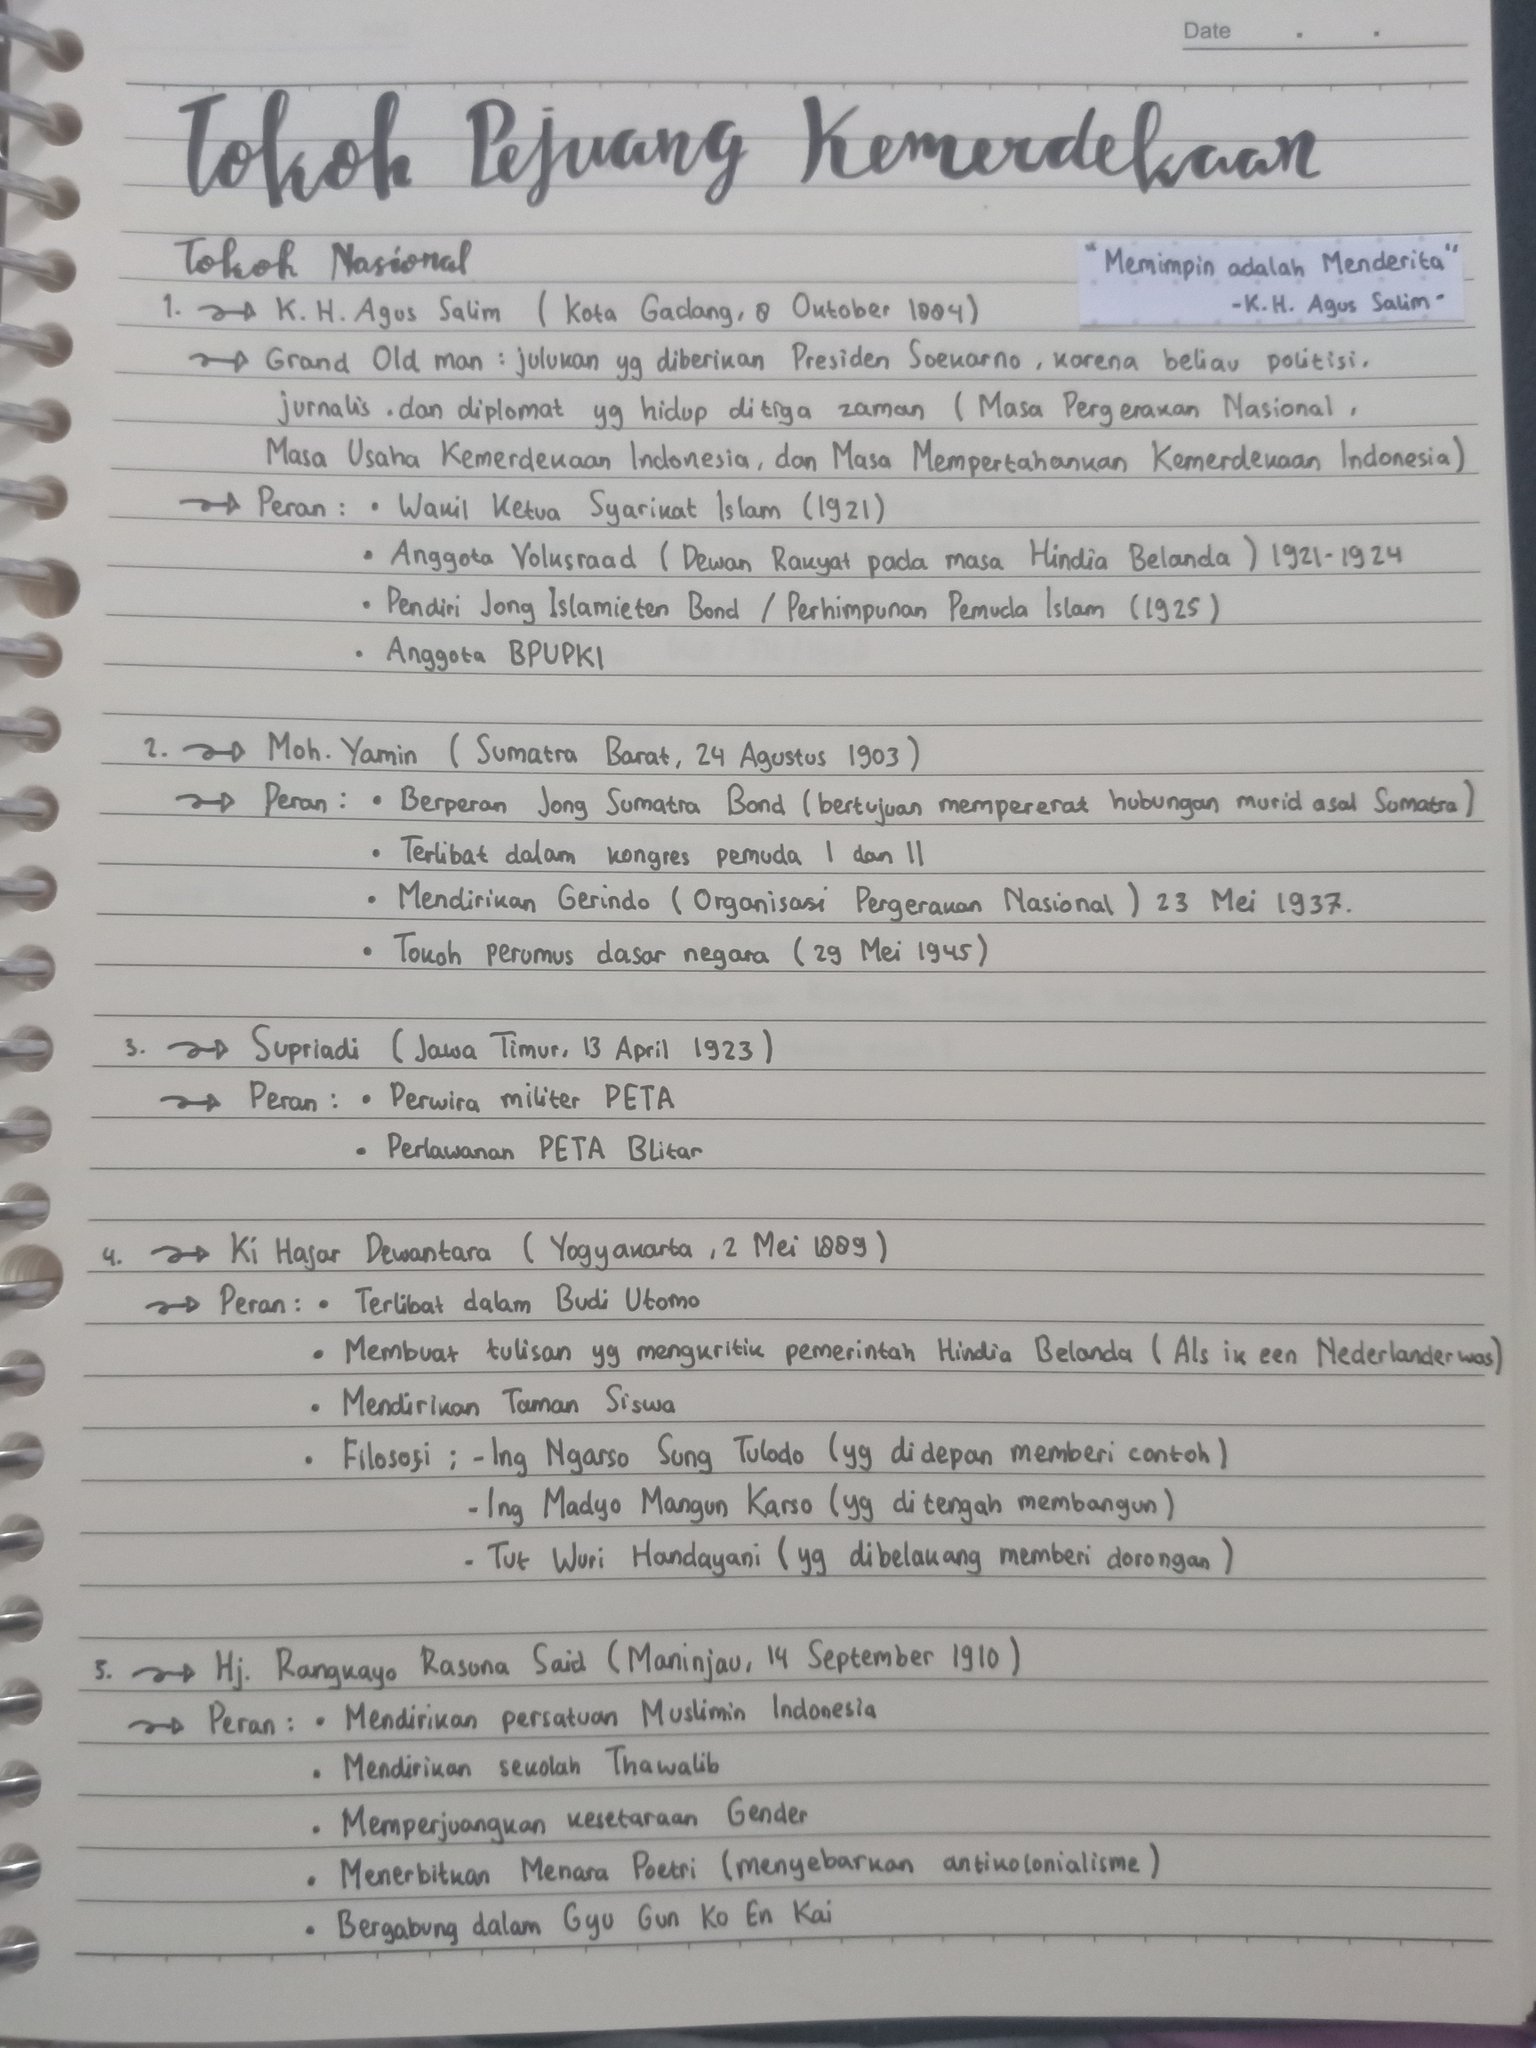 Date . .
Tokoh Pejuang Kemerdekaan
Tokoh Nasional
"Memimpin adalah Menderita"
-K.H. Agus Salim-
1. → K. H. Agus Salim ( Kota Gadang, 8 Oktober 1884)
→ Grand Old man : julukan yg diberikan Presiden Soekarno, karena beliau politisi,
jurnalis, dan diplomat yg hidup ditiga zaman ( Masa Pergerakan Nasional,
Masa Usaha Kemerdekaan Indonesia, dan Masa Mempertahankan Kemerdekaan Indonesia)
→ Peran : • Wakil Ketua Syarikat Islam (1921)
• Anggota Volksraad ( Dewan Rakyat pada masa Hindia Belanda ) 1921-1924
• Pendiri Jong Islamieten Bond / Perhimpunan Pemuda Islam (1925)
• Anggota BPUPKI
2. → Moh. Yamin ( Sumatra Barat, 24 Agustus 1903)
→ Peran : • Berperan Jong Sumatra Bond (bertujuan mempererat hubungan murid asal Sumatra)
• Terlibat dalam kongres pemuda I dan II
• Mendirikan Gerindo ( Organisasi Pergerakan Nasional ) 23 Mei 1937.
• Tokoh perumus dasar negara ( 29 Mei 1945)
3. → Supriadi ( Jawa Timur, 13 April 1923 )
→ Peran : • Perwira militer PETA
• Perlawanan PETA Blitar
4. → Ki Hajar Dewantara ( Yogyakarta, 2 Mei 1889 )
→ Peran : • Terlibat dalam Budi Utomo
• Membuat tulisan yg mengkritik pemerintah Hindia Belanda ( Als ik een Nederlander was)
• Mendirikan Taman Siswa
• Filosofi ; - Ing Ngarso Sung Tulodo (yg didepan memberi contoh)
- Ing Madyo Mangun Karso (yg ditengah membangun)
- Tut Wuri Handayani ( yg dibelakang memberi dorongan )
5. → Hj. Rangkayo Rasuna Said (Maninjau, 14 September 1910 )
→ Peran : • Mendirikan persatuan Muslimin Indonesia
• Mendirikan sekolah Thawalib
• Memperjuangkan kesetaraan Gender
• Menerbitkan Menara Poetri (menyebarkan antikolonialisme)
• Bergabung dalam Gyu Gun Ko En Kai